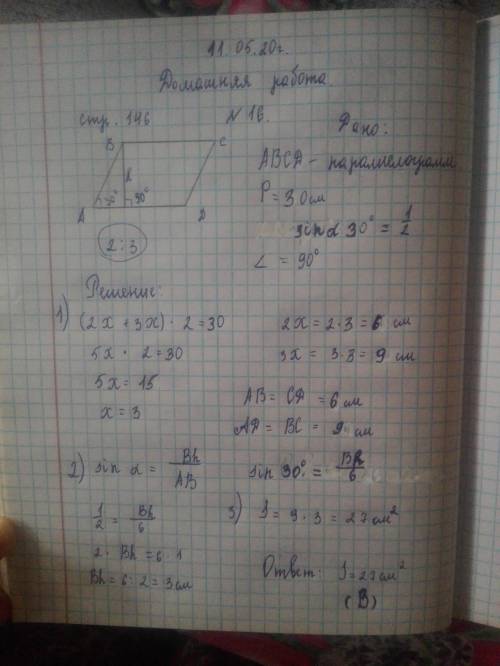 11.05.20г.
Домашняя работа.
стр. 146 № 16.
Дано:
B C
h
30° 90°
A D
2:3
ABCD - паралмелограмм
P = 30 см
sin α 30° = 1/2
∠ = 90°
Решение:
1) (2x + 3x) · 2 = 30
5x · 2 = 30
5x = 15
x = 3
2x = 2·3 = 6 см
3x = 3·3 = 9 см
AB = CD = 6 см
AD = BC = 9 см
2) sin α = Bh/AB
sin 30° = Bh/6
1/2 = Bh/6
2 · Bh = 6 · 1
Bh = 6 : 2 = 3 см
3) S = 9 · 3 = 27 см²
Ответ: S = 27 см²
(B)